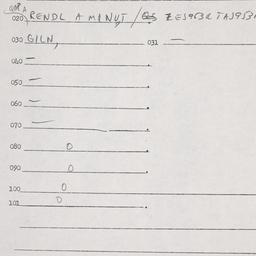 020 RENDL A MINUT /
030 GILN, 031 —
040 —
050 —
060 —
070 —
080 0
090 0
100 0
101 0